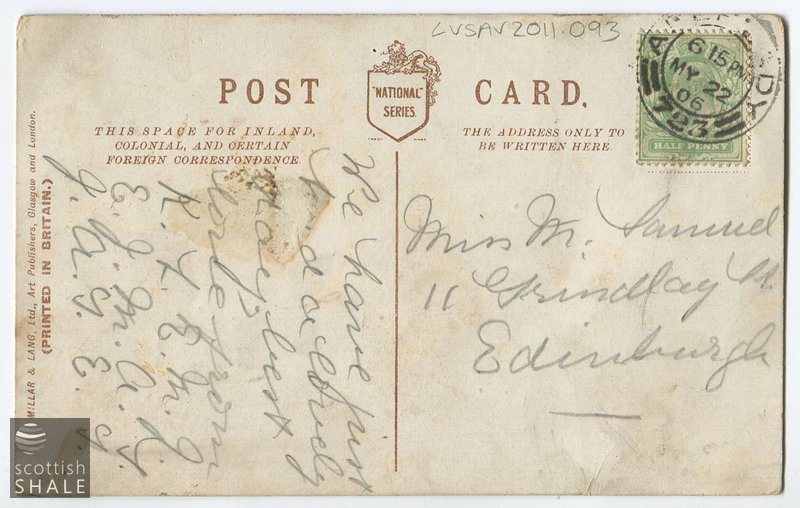 LVSAV2011.093
POST CARD.
"NATIONAL"
SERIES.
THIS SPACE FOR INLAND,
COLONIAL, AND CERTAIN
FOREIGN CORRESPONDENCE
THE ADDRESS ONLY TO
BE WRITTEN HERE.
6 15 PM
MY 22
06
723
HALF PENNY
MILLAR & LANG, Ltd., Art Publishers, Glasgow and London.
(PRINTED IN BRITAIN.)
We have just
had a lovely
day, best
love from
Miss M. Samuel
11 Grindlay St.
Edinburgh
scottish
SHALE